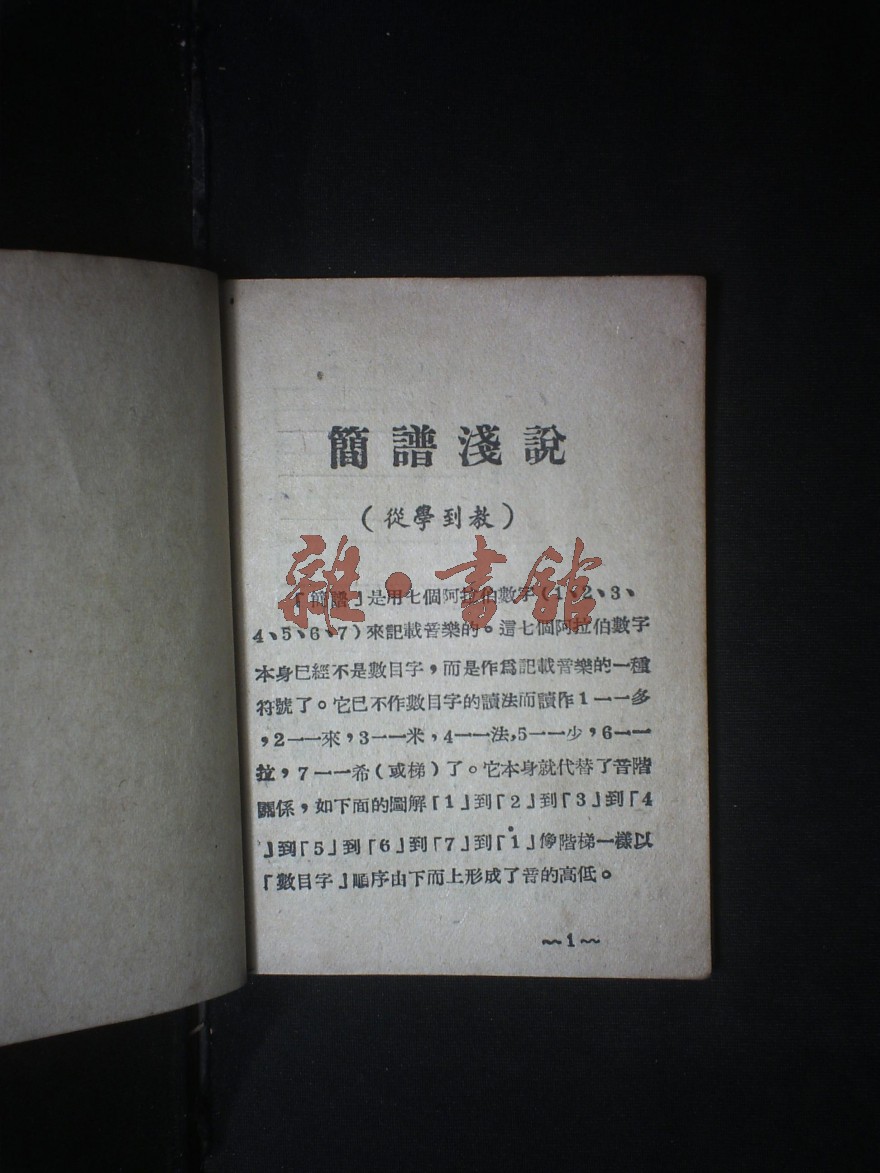 簡譜淺說
(從學到教)
雜·書館
「簡譜」是用七個阿拉伯數字(1、2、3、
4、5、6、7)來記載音樂的。這七個阿拉伯數字
本身已經不是數目字，而是作爲記載音樂的一種
符號了。它已不作數目字的讀法而讀作1一一多
，2一一來，3一一米，4一一法,5一一少，6一一
拉，7一一希(或梯)了。它本身就代替了音階
關係，如下面的圖解「1」到「2」到「3」到「4
」到「5」到「6」到「7」到「1̇」像階梯一樣以
「數目字」順序由下而上形成了音的高低。
~1~